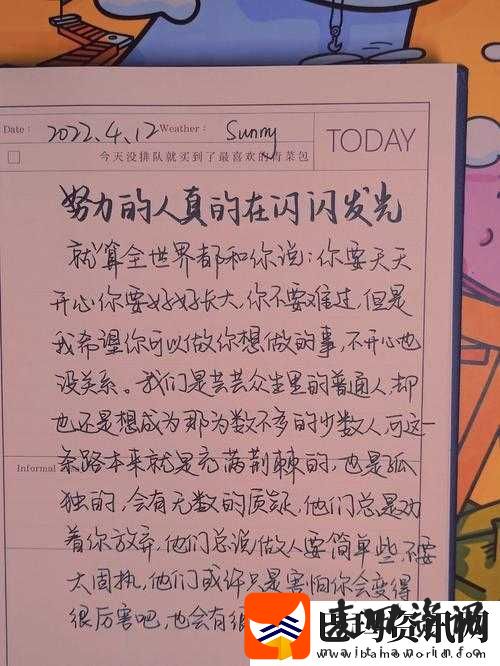 Date: 2022.4.12 Weather: Sunny
TODAY
今天没排队就买到了最喜欢的青菜包
努力的人真的在闪闪发光
就算全世界都和你说：你要天天
开心你要好好长大，你不要难过，但是
我希望你可以做你想做的事，不开心也
没关系。我们是芸芸众生里的普通人，却
也还是想成为那为数不多的少数人，可这一
条路本来就是充满荆棘的，也是孤
Informal
独的，会有无数的质疑，他们总是劝
着你放弃，他们总说做人要简单些，不要
太固执，他们或许只是害怕你会变得
很厉害吧，也会有很
www.baimaworld.com